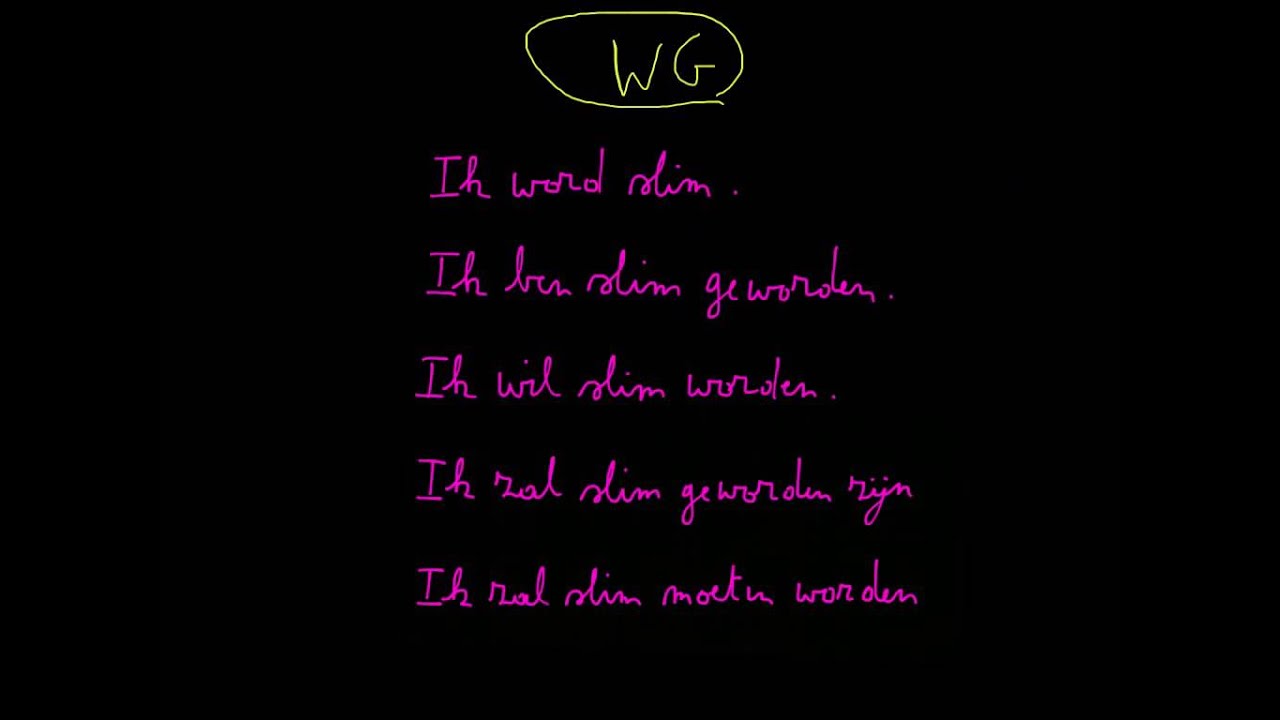 WG
Ik word slim.
Ik ben slim geworden.
Ik wil slim worden.
Ik zal slim geworden zijn
Ik zal slim moeten worden